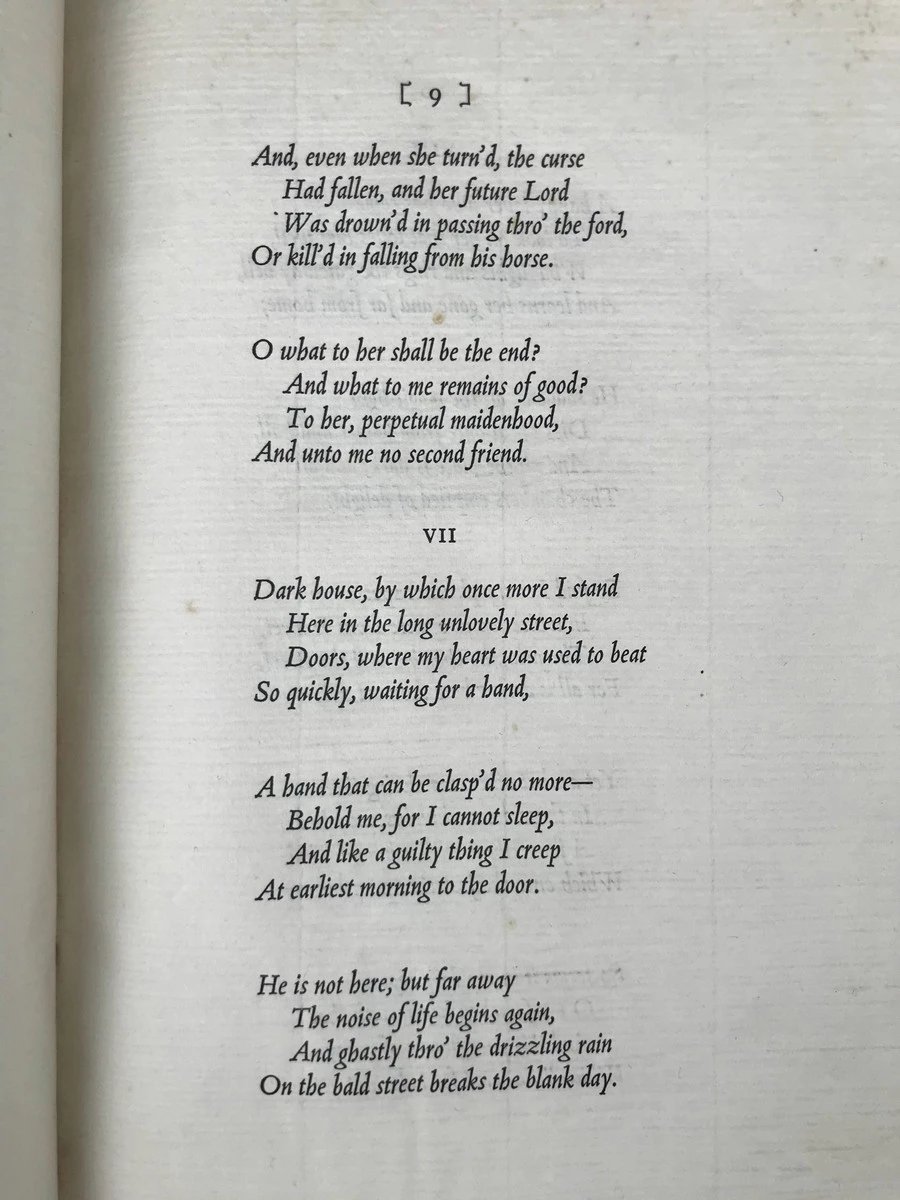 [ 9 ]
And, even when she turn'd, the curse
Had fallen, and her future Lord
Was drown'd in passing thro' the ford,
Or kill'd in falling from his horse.
O what to her shall be the end?
And what to me remains of good?
To her, perpetual maidenhood,
And unto me no second friend.
VII
Dark house, by which once more I stand
Here in the long unlovely street,
Doors, where my heart was used to beat
So quickly, waiting for a hand,
A hand that can be clasp'd no more—
Behold me, for I cannot sleep,
And like a guilty thing I creep
At earliest morning to the door.
He is not here; but far away
The noise of life begins again,
And ghastly thro' the drizzling rain
On the bald street breaks the blank day.